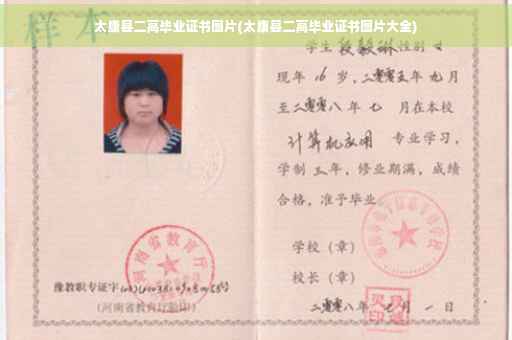 太康县二高毕业证书图片(太康县二高毕业证书图片大全)
样本
学生 段毅琳 性别 女
现年 16 岁，二零零五年 九月
至二零零八年 七 月在本校
计算机应用 专业学习，
学制 三 年，修业期满，成绩
合格，准予毕业
学校（章）
校长（章）
二零零八年 七 月 一 日
河南省教育厅
豫教职专证字
(河南省教育厅验印)